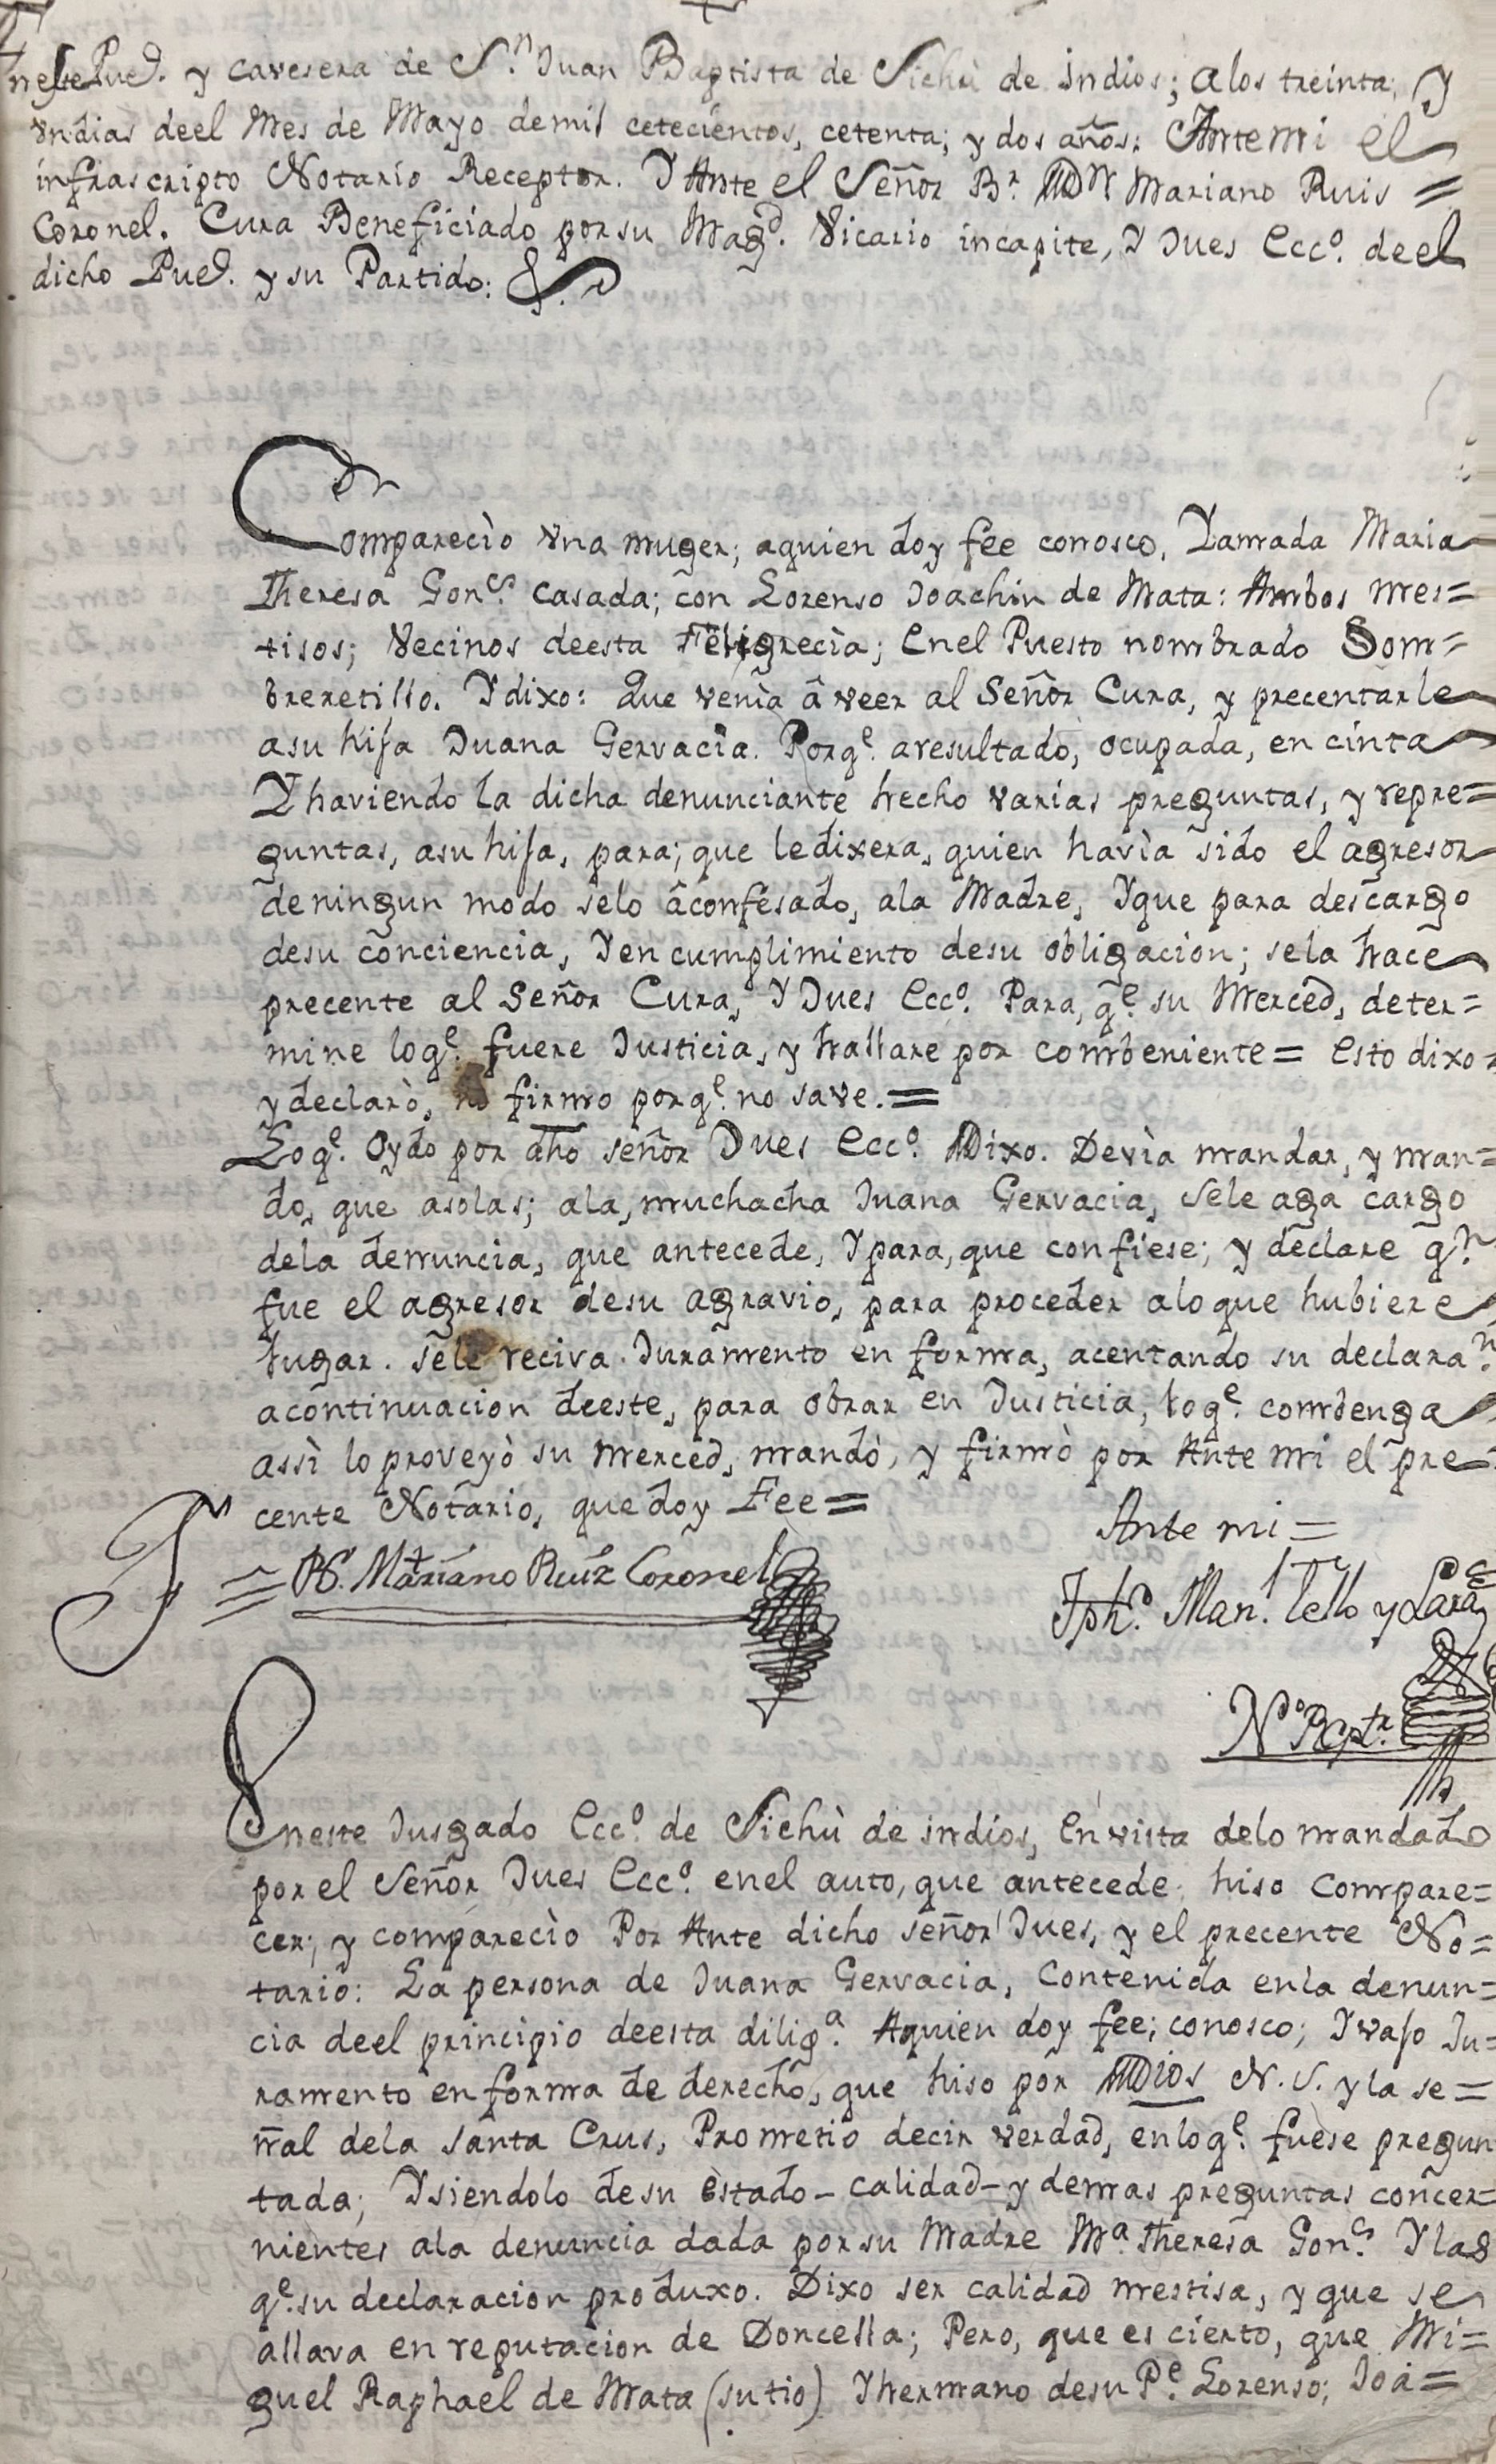 En este Pue.d y cavesera de S.n Juan Baptista de Sichù de indios; alos treinta, y
vn dias deel Mes de Mayo de mil cetecientos, cetenta; y dos años: Ante mi el
infrascripto Notario Receptor. Y Ante el Señor B.r D.n Mariano Ruis =
Coronel. Cura Beneficiado por su Mag.d Vicario incapite, Y Jues Ecc.o deel
dicho Pue.d y su Partido:
Comparecìo vna muger; aquien doy fee conosco, Yamada Maria
Theresa Gon.s casada; con Lorenso Joachin de Mata: Ambos mes=
tisos; Vecinos deesta Feligrecìa; Enel Puesto nombrado Som=
breretillo. Y dixo: Que venìa â veer al Señor Cura, y precentarle
asu hija Juana Gervacia. Porq.e aresultado, ocupada, en cinta
Y haviendo la dicha denunciante hecho varias preguntas, y repre=
guntas, asu hija, para; que ledixera, quien havìa sido el agresor
deningun modo selo âconfesado, ala Madre, Yque para descargo
desu conciencia, Y en cumplimiento desu obligacion; sela hace
precente al Señor Cura, Y Jues Ecc.o Para, q.e su Merced, deter=
mine loq.e fuere Justicia, y hallare por combeniente = Esto dixo
y declarò, no firmo porq.e no save. =
Loq.e Oydo por dho señor Jues Ecc.o Dixo. Devìa mandar, y man=
do, que asolas; ala, muchacha Juana Gervacia, sele aga cargo
dela denuncia, que antecede, Y para, que confiese; y declare q.n
fue el agresor desu agravio, para proceder aloque hubiere
lugar. sele reciva Juramento en forma, acentando su declara.n
acontinuacion deeste, para obrar en Justicia, loq.e combenga
assì lo proveyò su Merced, mandò, y firmò por Ante mi el pre=
cente Notario, que doy Fee =
Ante mi =
= B.r Mariano Ruiz Coronel
Jph. Man.l Tello y Lara
N.o Rcpt.r
Eneste Jusgado Ecc.o de Sichù de indios, En vista delo mandado
por el Señor Jues Ecc.o enel auto, que antecede, hiso compare=
cer; y comparecìo Por Ante dicho señor Jues, y el precente No=
tario: La persona de Juana Gervacia, Contenida enla denun=
cia deel principio deesta dilig.a Aquien doy fee; conosco; Y vajo Ju=
ramento en forma de derecho, que hiso por Dios N. S. y la se=
ñal dela santa Crus, Prometio decir verdad, enloq.e fuese pregun
tada; Y siendolo desu estado - calidad - y demas preguntas concer=
nientes ala denuncia dada por su Madre M.a Theresa Gon.s Y las
q.e su declaracion produxo. Dixo ser calidad mestisa, y que se
allava en reputacion de Doncella; Pero, que es cierto, que Mi=
guel Raphael de Mata (su tio) Y hermano desu P.e Lorenso; Joa=